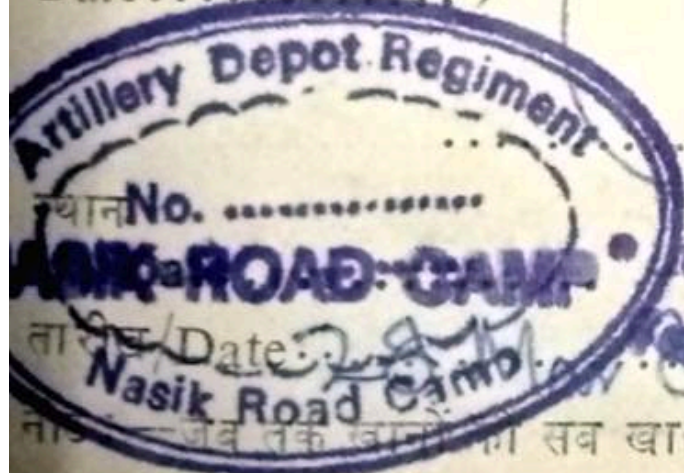 Artillery Depot Regiment
स्थान No. ....................
NASIK ROAD CAMP
तारीख/Date 28 Nov
Nasik Road Camp
जब तक खानों की सब खा